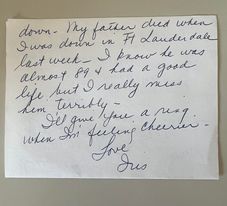 down - My father died when
I was down in Ft Lauderdale
last week - I know he was
almost 89 & had a good
life but I really miss
him terribly -
I'll give you a ring
when I'm feeling cheerier -
Love
Iris